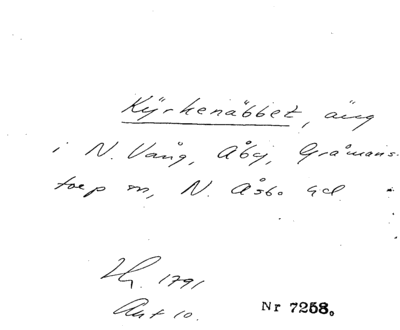 Kyrkenäbbet, äng
i N. Vång, Åby, Gråmans-
torp sn, N. Åsbo hd
1791
Akt 10.
Nr 7258.